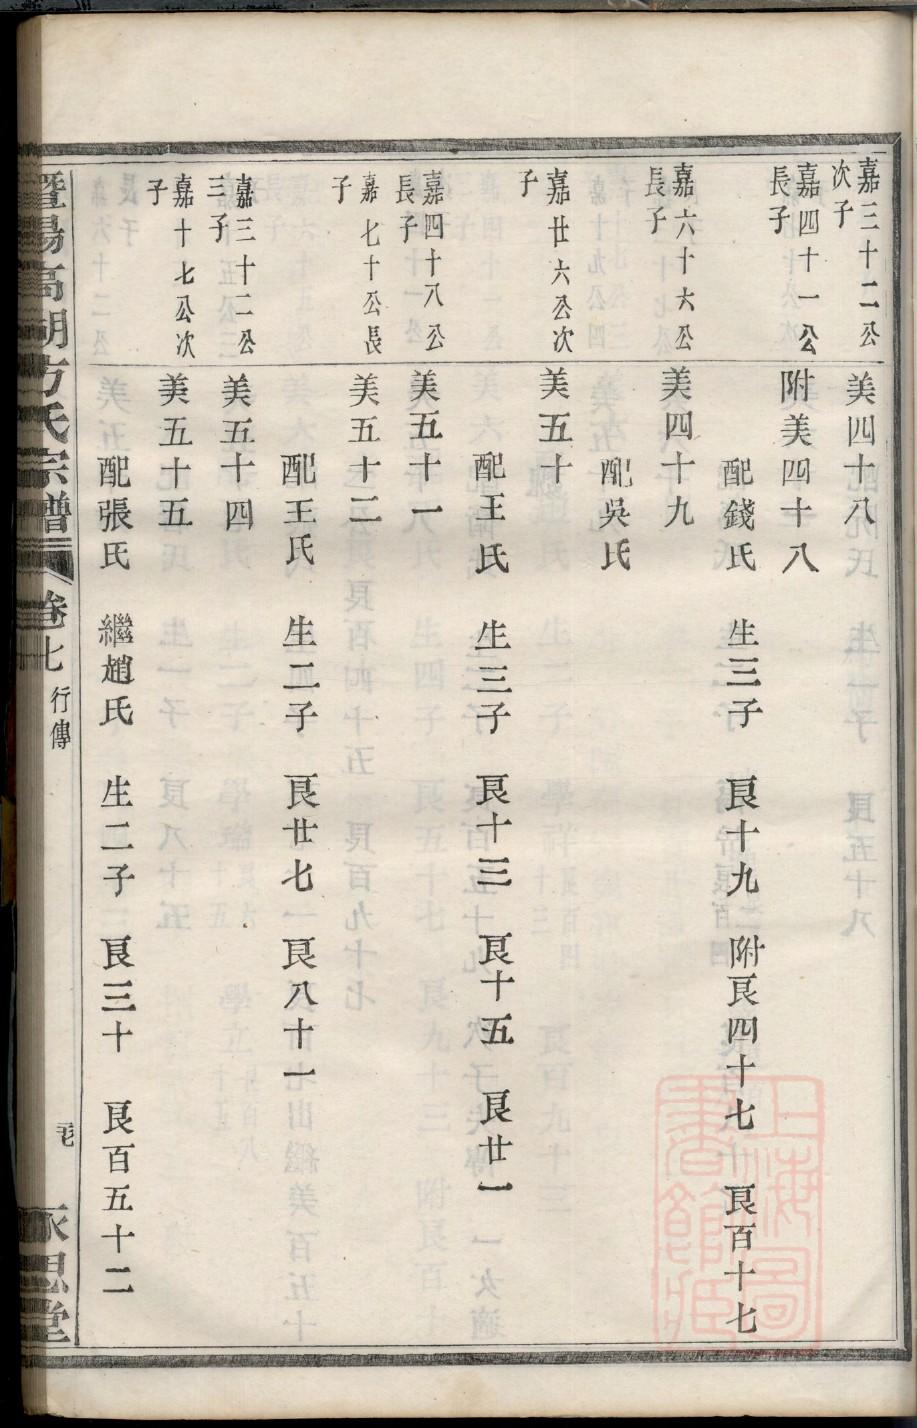 嘉三十二公次子
美四十八
嘉四十一公長子
附美四十八
配錢氏 生三子 艮十九 附艮四十七 艮百十七
嘉六十六公長子
美四十九
配吳氏
嘉廿六公次子
美五十
配王氏 生三子 艮十三 艮十五 艮廿一
嘉四十八公長子
美五十一
嘉七十公長子
美五十二
配王氏 生二子 艮廿七 艮八十一
嘉三十二公三子
美五十四
嘉十七公次子
美五十五
配張氏 繼趙氏 生二子 艮三十 艮百五十二
暨陽高湖方氏宗譜 卷七 行傳 永思堂
上海圖書館藏